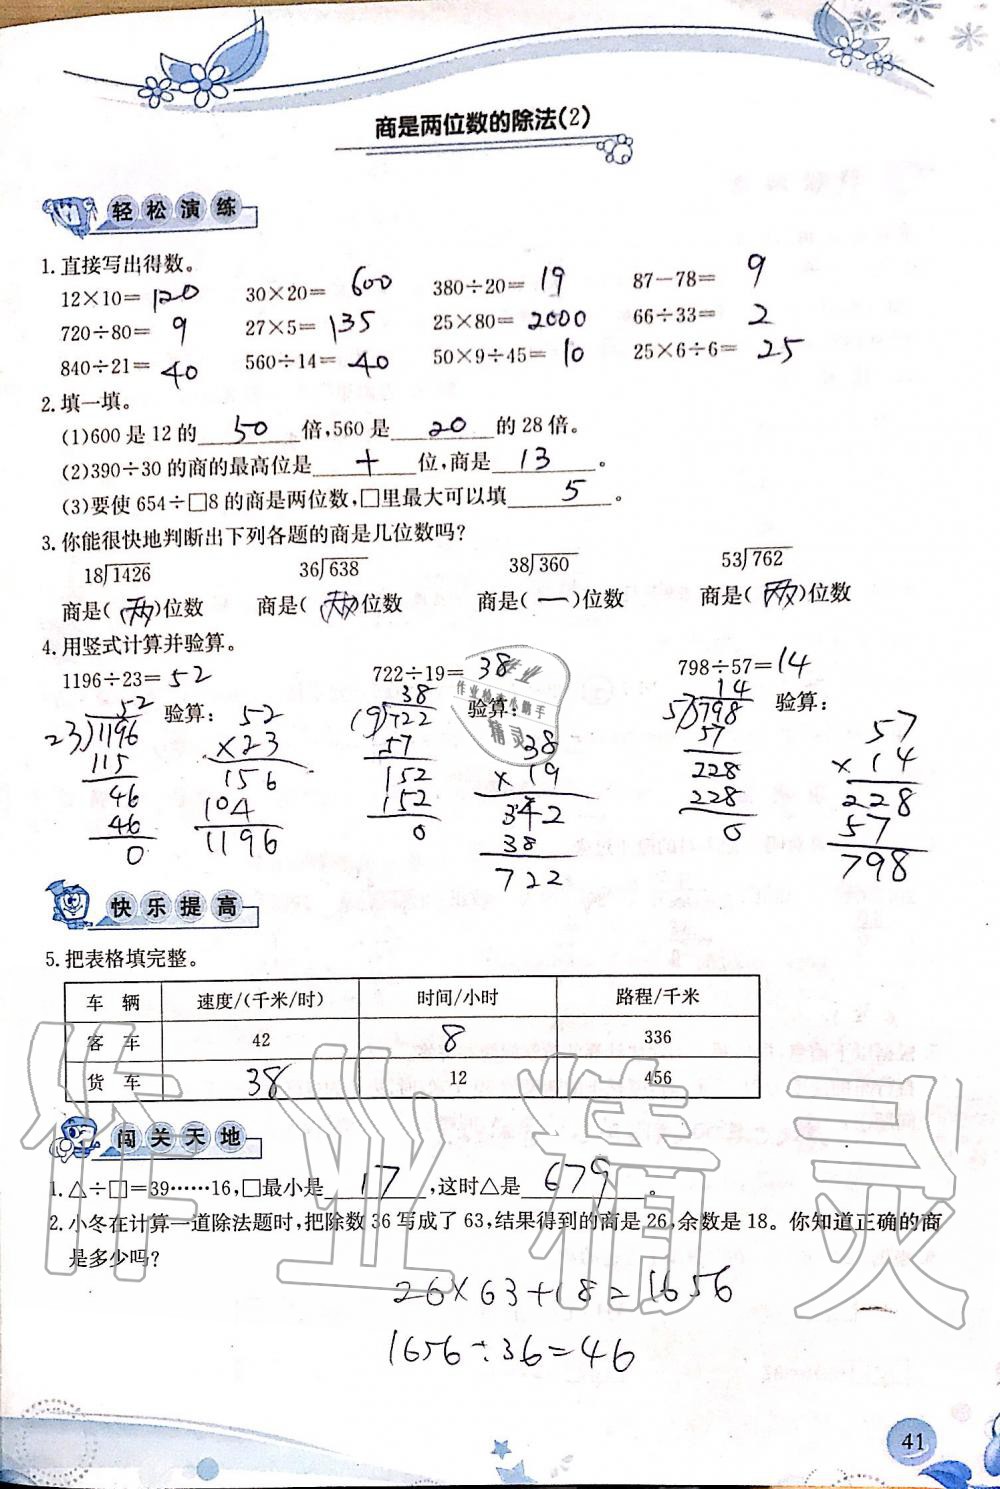 商是两位数的除法(2)
轻松演练
1.直接写出得数。
12×10=120 30×20=600 380÷20=19 87-78=9
720÷80=9 27×5=135 25×80=2000 66÷33=2
840÷21=40 560÷14=40 50×9÷45=10 25×6÷6=25
2.填一填。
(1)600是12的 50 倍,560是 20 的28倍。
(2)390÷30的商的最高位是 十 位,商是 13 。
(3)要使654÷□8的商是两位数,□里最大可以填 5 。
3.你能很快地判断出下列各题的商是几位数吗?
18)1426 36)638 38)360 53)762
商是(两)位数 商是(两)位数 商是(一)位数 商是(两)位数
4.用竖式计算并验算。
1196÷23=52 722÷19=38 798÷57=14
52 验算: 52 38 验算: 38 14 验算: 57
23)1196 ×23 19)722 ×19 57)798 ×14
115 156 57 342 57 228
46 104 152 38 228 57
46 1196 152 722 228 798
0 0 0
作业
作业检查小助手
精灵
快乐提高
5.把表格填完整。
车辆 速度/(千米/时) 时间/小时 路程/千米
客车 42 8 336
货车 38 12 456
闯关天地
1.△÷□=39……16,□最小是 17 ,这时△是 679 。
2.小冬在计算一道除法题时,把除数36写成了63,结果得到的商是26,余数是18。你知道正确的商
是多少吗?
26×63+18=1656
1656÷36=46
作业精灵
41